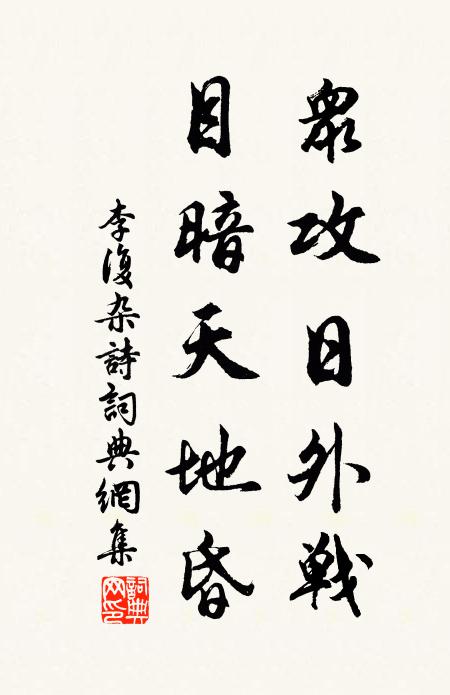 眾攻日外戰
目暗天地昏
李復杂詩詞典網集
詞典網印